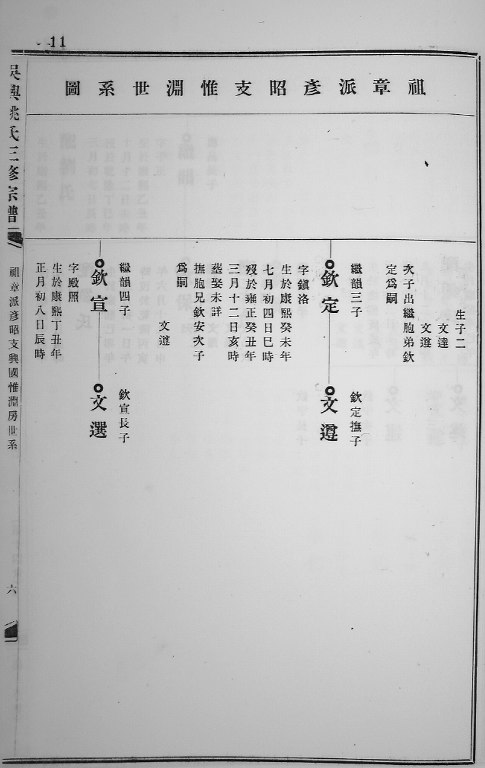 11
祖章派彥昭支惟淵世系圖
生子二
文達
文遵
次子出繼胞弟欽
定爲嗣
繼韻三子
欽定
字鎮洛
生於康熙癸未年
七月初四日巳時
歿於雍正癸丑年
三月十二日亥時
葬娶未詳
撫胞兄欽安次子
爲嗣
文遵
欽定撫子
文遵
繼韻四子
欽宣
字殿照
生於康熙丁丑年
正月初八日辰時
欽宣長子
文選
吳興姚氏三修宗譜
祖章派彥昭支興國惟淵房世系
六